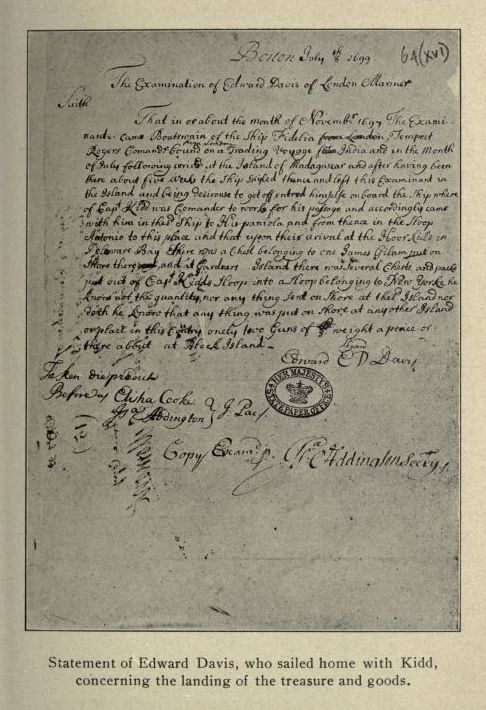 Boston July th 8 1699
64(XVI)
The Examination of Edward Davis of London Mariner
Saith
That in or about the month of Novembr 1697 The Exami-
nant came Boatswain of the Ship Fidelia from London, Tempest
Rogers Comander bound on a Trading Voyage for India and in the Month
of July following arived at the Island of Madagascar and after having been
there about five weeks the Ship Sailed thence and left this Examinant in
the Island and being desirouse to get off entred himselfe on board the Ship where
of Capt Kidd was Comander to worke for his passage and accordingly came
with him in the Ship to Hispaniola and from thence in the Sloop
Antonio to this place and that upon their arival at the Hoor Kills in
Delaware Bay there was a Chest belonging to one James Gilam put on
Shore there and at Gardners Island there was Several Chests and packs
put out of Capt Kidds Sloop into a Sloop belonging to New Yorke he
knows not the quantity nor any thing Sent on Shore at the Island nor
doth he know that any thing was put on Shore at any other Island
or place in this Contry onely two Guns of weight a peice or
there about at Block Island.
Signd
Edward E D Davis
Taken die predict
Before us Elisha Cooke
Is Addington } J. Pac
HER MAJESTY'S
STATE PAPER OFFICE
Copy Examd p. Is Addington Secry
Statement of Edward Davis, who sailed home with Kidd,
concerning the landing of the treasure and goods.